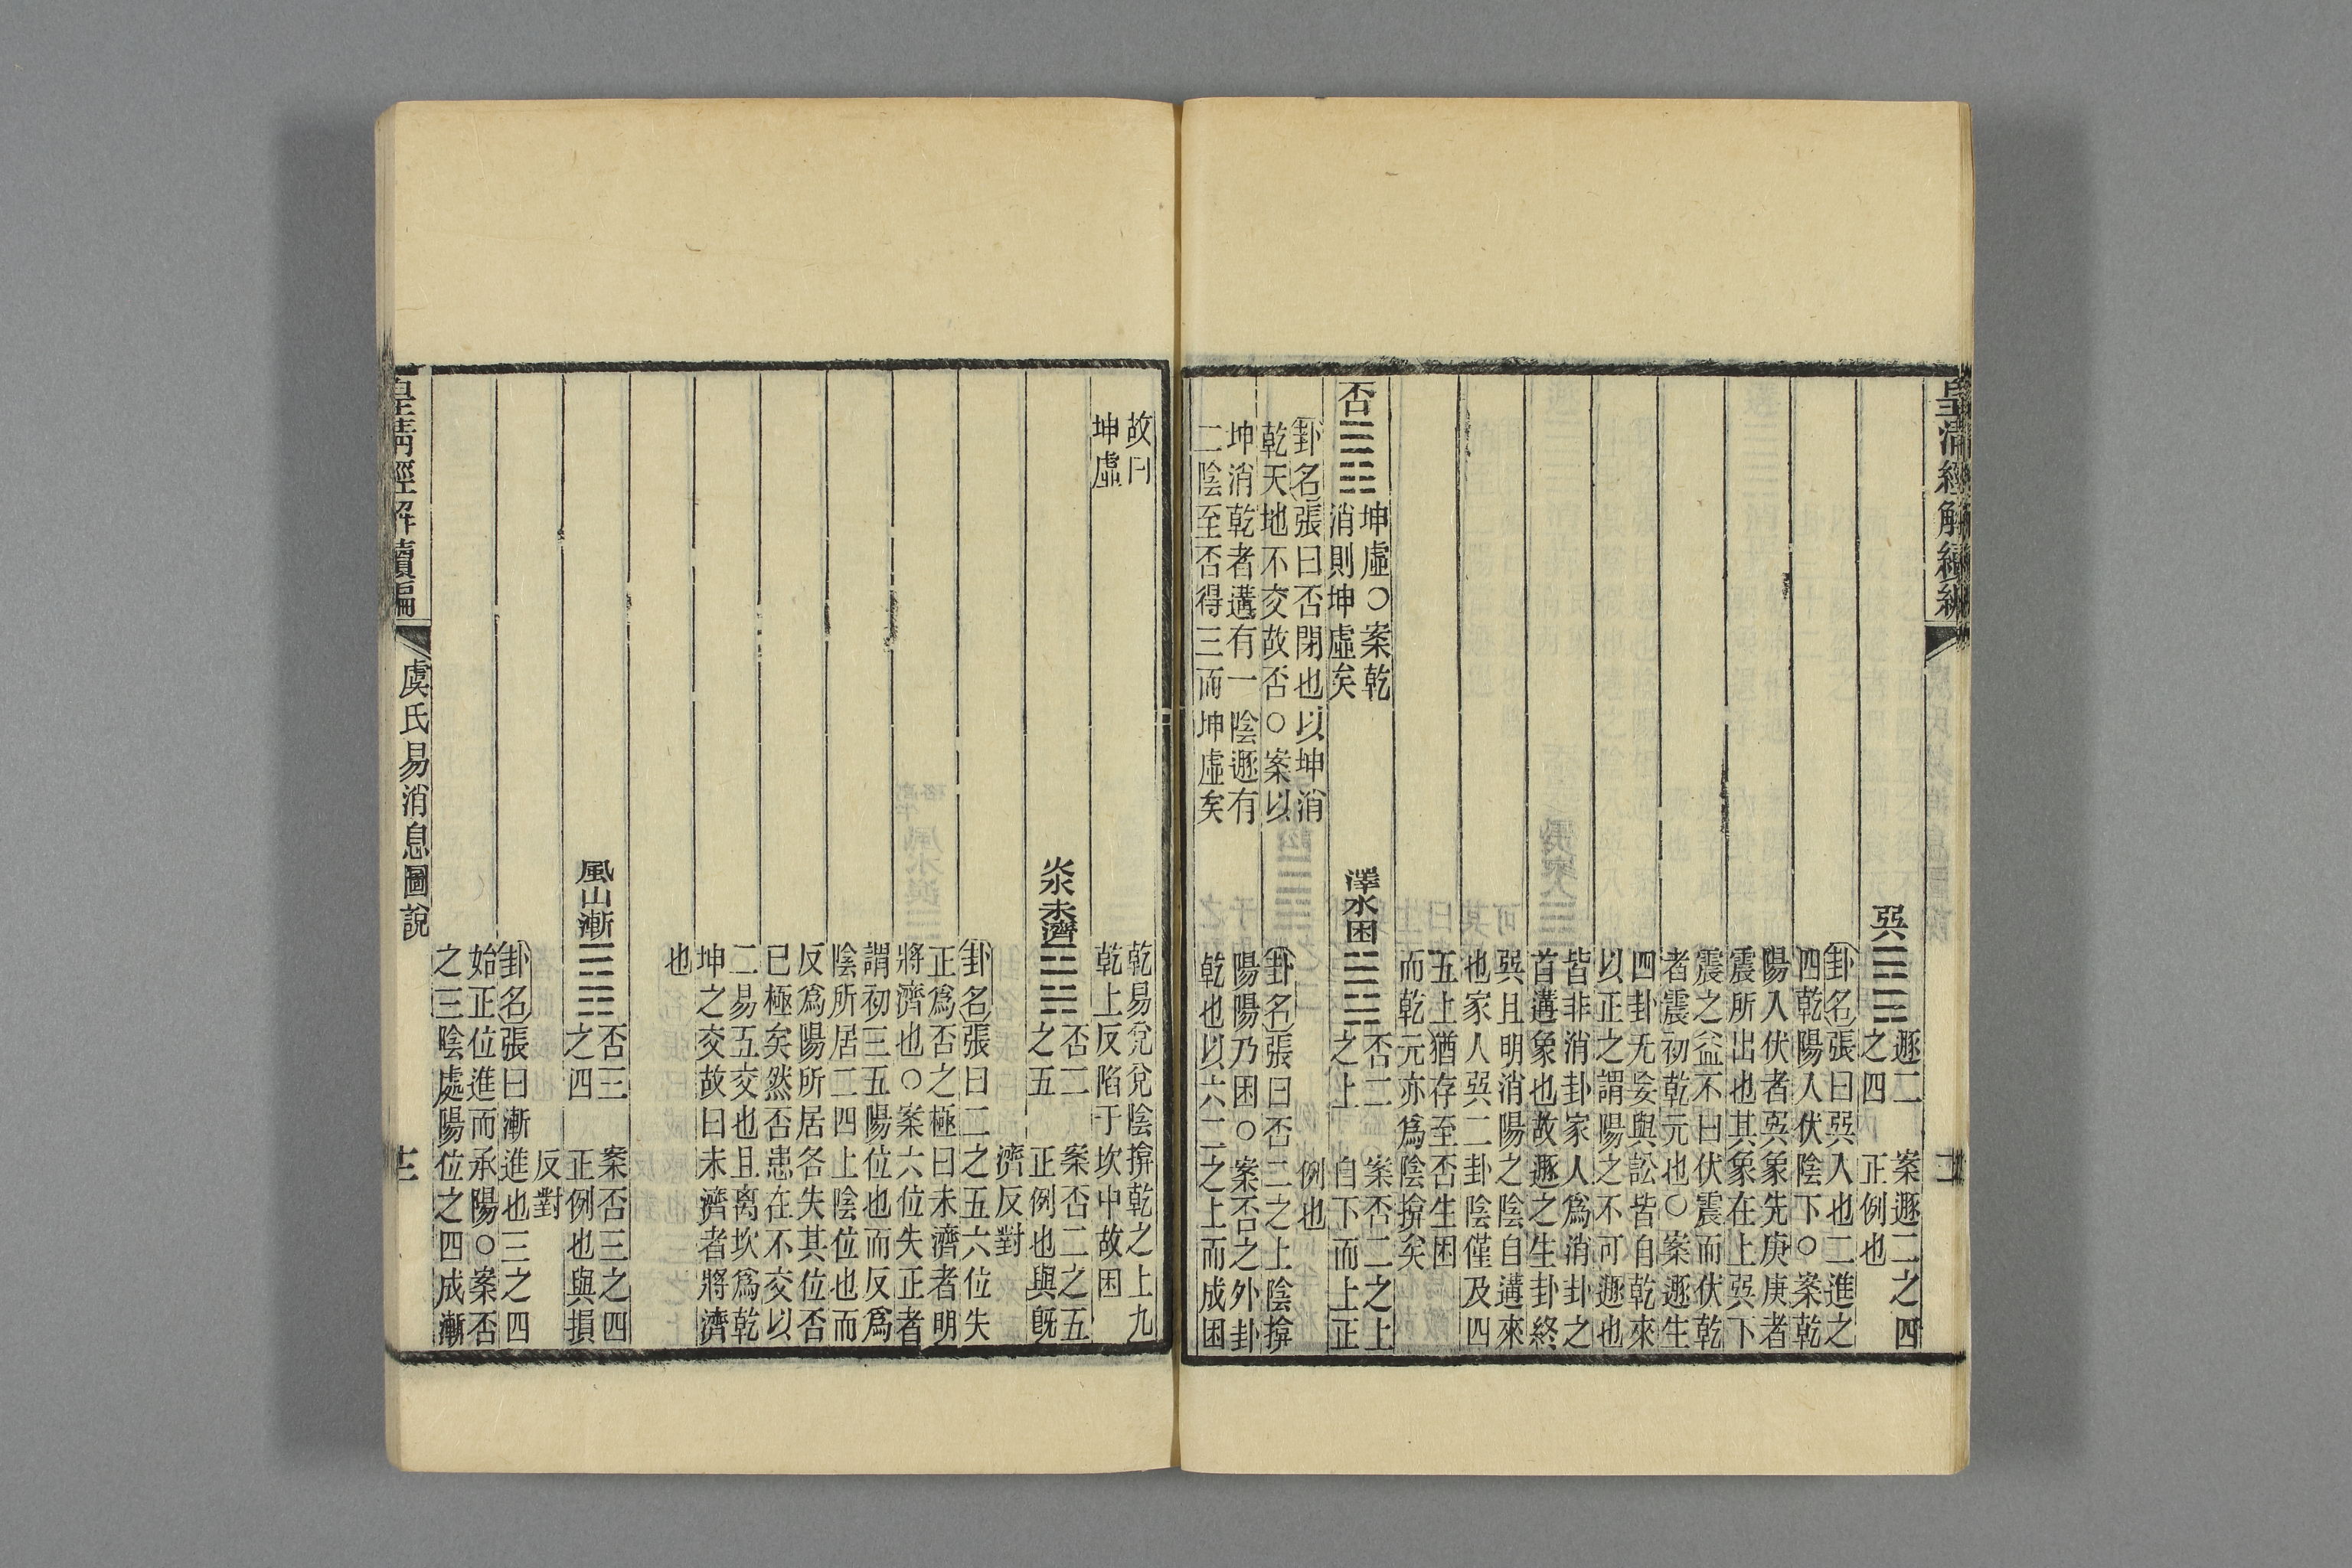 皇清經解續編
巽䷸
遯二　案遯二之四
之四　正例也
卦名張曰巽入也二進之
四乾陽入伏陰下○案乾
陽入伏者巽象先庚庚者
震所出也其象在上巽下
震之益不曰伏震而伏乾
者震初乾元也○案遯生
四卦无妄與訟皆自乾來
以正之謂陽之不可遯也
皆非消卦家人爲消卦之
首遘象也故遯之生卦終
巽且明消陽之陰自遘來
也家人巽二卦陰僅及四
五上猶存至否生困
而乾元亦爲陰揜矣
否䷋
坤虛○案乾
消則坤虛矣
澤水困䷮
否二　案否二之上
之上　自下而上正
例也
卦名張曰否閉也以坤消
乾天地不交故否○案以
坤消乾者遘有一陰遯有
二陰至否得三而坤虛矣
卦名張曰否二之上陰揜
陽陽乃困○案否之外卦
乾也以六二之上而成困
故曰
坤虛
乾易兌兌陰揜乾之上九
乾上反陷于坎中故困
火水未濟䷿
否二　案否二之五
之五　正例也與既
濟反對
卦名張曰二之五六位失
正爲否之極曰未濟者明
將濟也○案六位失正者
謂初三五陽位也而反爲
陰所居二四上陰位也而
反爲陽所居各失其位否
已極矣然否患在不交以
二易五交也且离坎爲乾
坤之交故曰未濟者將濟
也
風山漸䷴
否三　案否三之四
之四　正例也與損
反對
卦名張曰漸進也三之四
始正位進而承陽○案否
之三陰處陽位之四成漸
皇清經解續編
虞氏易消息圖說